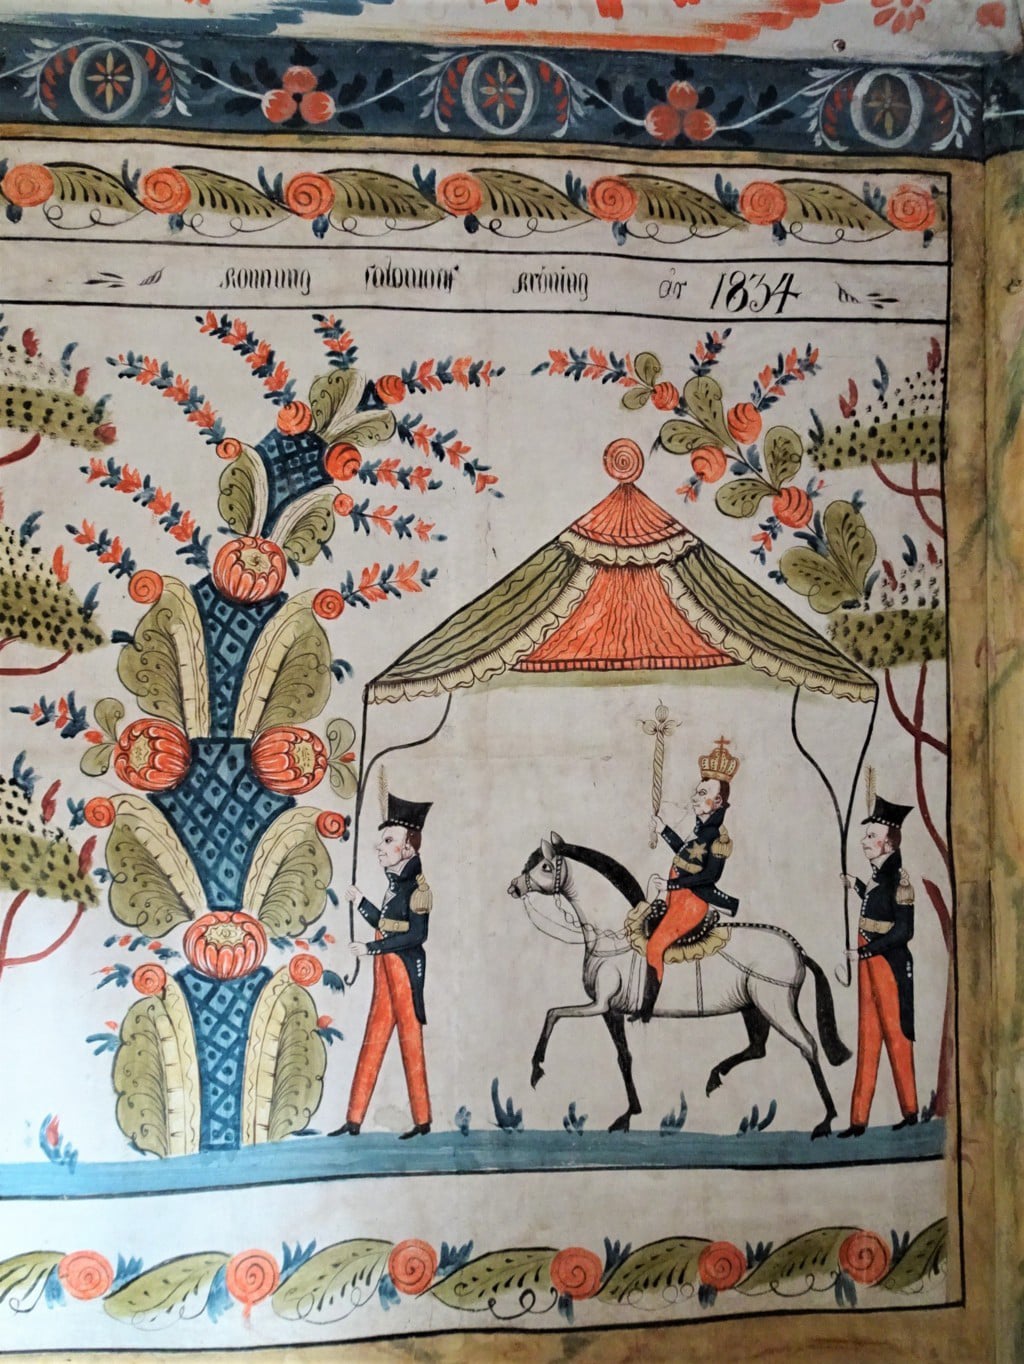 konnung salomons kröning år 1834